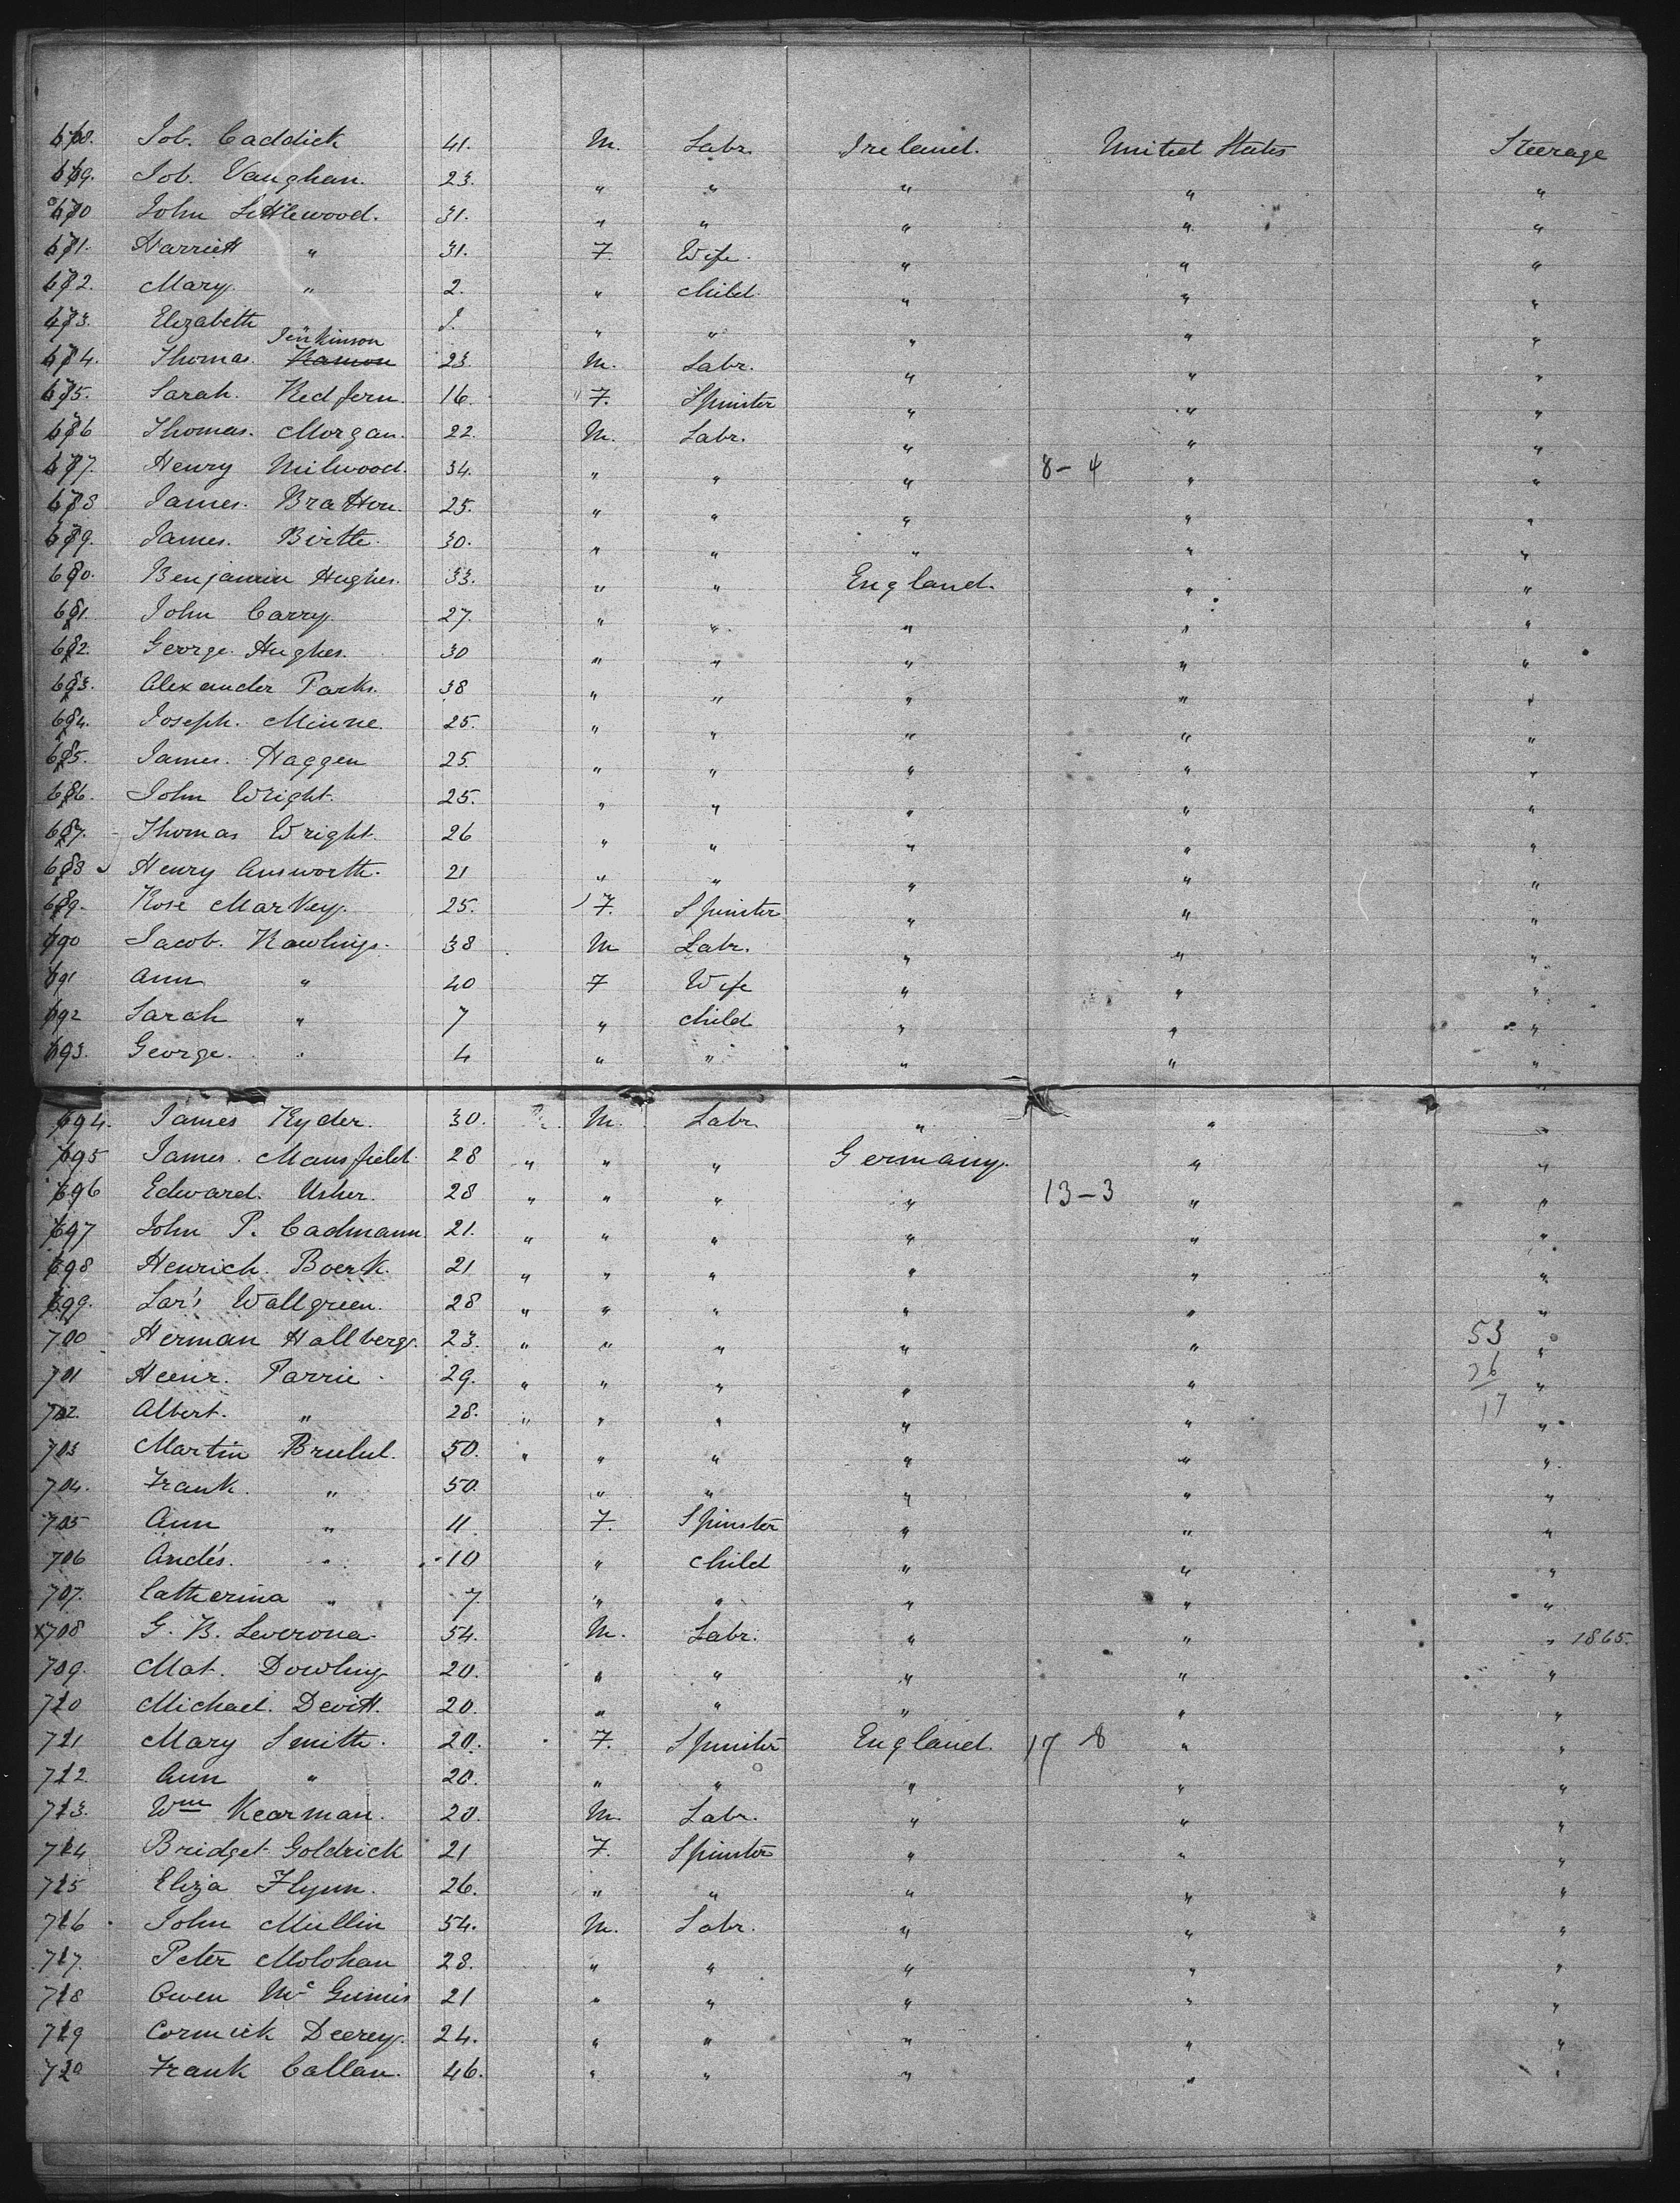 668. Job. Caddick 41. M. Labr. Ireland. United States Steerage
669. Job. Vaughan. 23. " " " " "
670 John Littlewood. 31. " " " " "
671. Harriett " 31. F. Wife. " " "
672. Mary. " 2. " child " " "
673. Elizabeth " " " " " "
Jenkinson
674. Thomas. 23. M. Labr. " " "
675. Sarah. Redfern. 16. F. Spinster " " "
676 Thomas. Morgan. 22. M. Labr. " " "
677. Henry Milwood. 34. " " " 8-4 " "
678 James. Bratton. 25. " " " " "
679. James. Birtte. 30. " " " " "
680. Benjamin Hughes. 33. " " England. " "
681. John Carry. 27. " " " " "
682. George. Hughes. 30 " " " " "
683. Alexander Parks. 38 " " " " "
684. Joseph. Minne. 25. " " " " "
685. James. Haggen 25. " " " " "
686. John Wright. 25. " " " " "
687. Thomas Wright. 26 " " " " "
688 Henry Ainsworth. 21 " " " " "
689. Rose Markey. 25. F. Spinster " " "
690 Jacob. Rawlings. 38 M Labr. " " "
691 Ann " 40 F Wife " " "
692 Sarah " 7 " child " " "
693. George. " 4 " " " " "
694. James Ryder. 30. M. Labr. " " "
695 James. Mansfield 28 " " " Germany. " "
696 Edward. Usher. 28 " " " " 13-3 " "
697 John P. Cadmann 21. " " " " " "
698 Henrich. Boerk. 21 " " " " " "
699. Lar's Wallgreen. 28 " " " " " "
700 Herman Hallberg. 23. " " " " " 53 "
701 Heinr. Parrie. 29. " " " " " 26 "
702. Albert. " 28. " " " " " 17 "
703 Martin Bruhul. 50. " " " " " "
704. Frank. " 50. " " " " "
705 Ann " 11 F. Spinster " " "
706 Andés. " 10 " child " " "
707. Catherina " 7 " " " " "
x708 G. B. Leverona. 54. M. Labr. " " " 1865.
709. Mat. Dowling 20. " " " " "
710 Michael. Devitt. 20. " " " " "
711 Mary Smith. 20. F. Spinster England. 17 8 " "
712. Ann " 20. " " " " "
713. Wm Kearman. 20. M. Labr. " " "
714 Bridget Goldrick 21 F. Spinster " " "
715 Eliza Flynn. 26. " " " " "
716 John Mullin 54. M. Labr. " " "
717. Peter Molohan 28. " " " " "
718 Owen Mc Ginnis 21 " " " " "
719 Cormick Deerey. 24. " " " " "
720 Frank Callan. 46. " " " " "